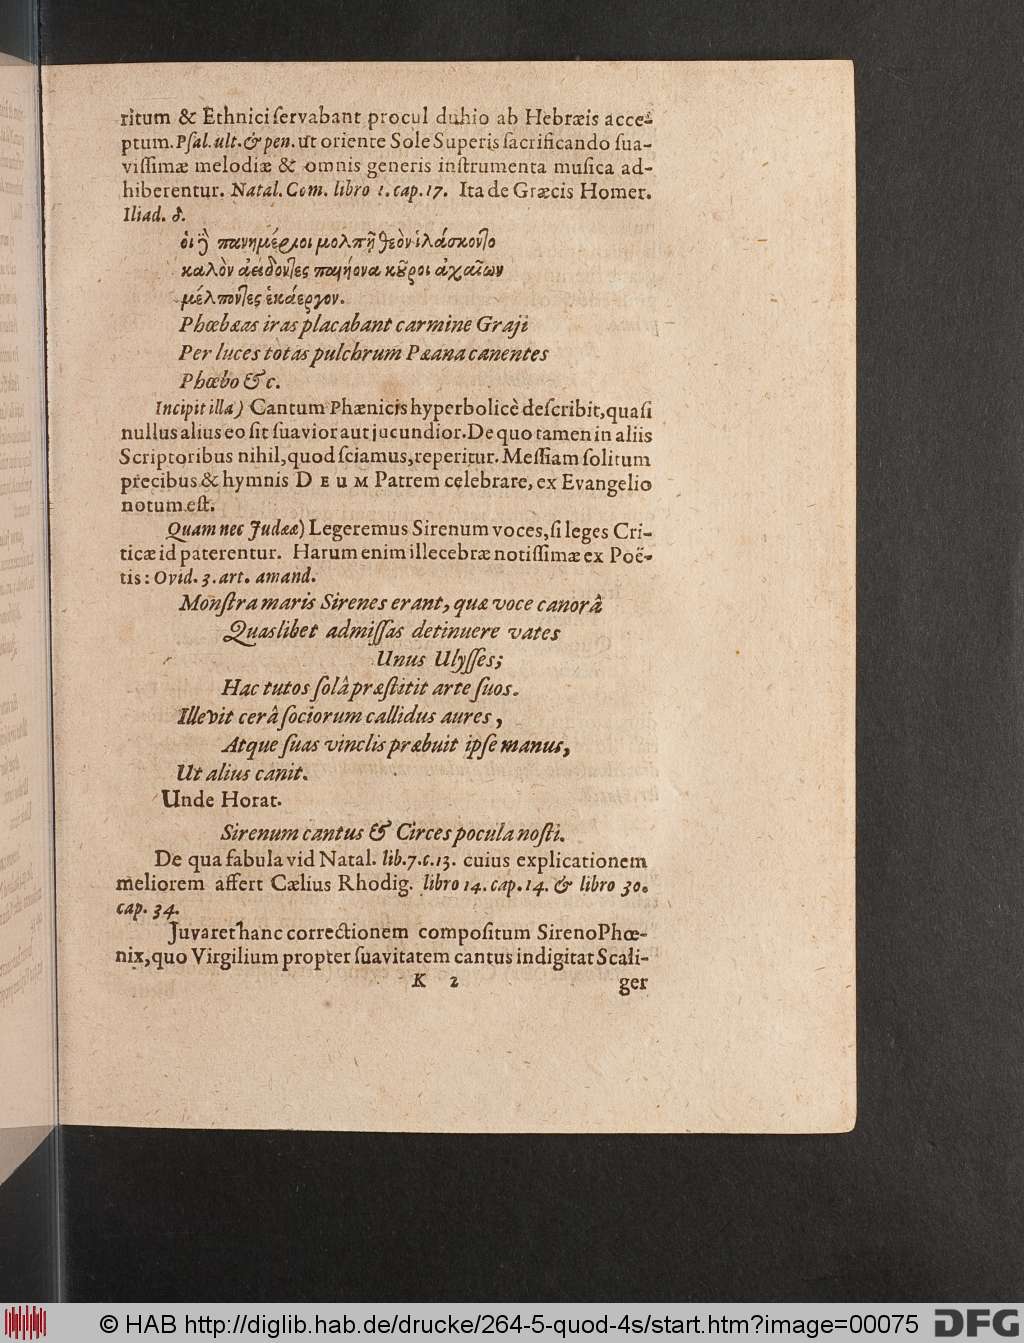 ritum & Ethnici ſervabant procul duhio ab Hebræis acce-
ptum. Pſal. ult. & pen. ut oriente Sole Superis ſacrificando ſua-
viſſimæ melodiæ & omnis generis inſtrumenta muſica ad-
hiberentur. Natal. Com. libro 1. cap. 17. Ita de Græcis Homer.
Iliad. δ.
ὁι ϳ πανημέριοι μολπῇ θεὸν ἱλάσκοντο
καλὸν ἀείδοντες παιήονα κοῦροι ἀχαιῶν
μέλποντες ἑκάεργον.
Phœbæas iras placabant carmine Graji
Per luces totas pulchrum Pæana canentes
Phœbo &c.
Incipit illa) Cantum Phænicis hyperbolicè deſcribit, quaſi
nullus alius eo ſit ſuavior aut jucundior. De quo tamen in aliis
Scriptoribus nihil, quod ſciamus, reperitur. Meſſiam ſolitum
precibus & hymnis DEUM Patrem celebrare, ex Evangelio
notum eſt.
Quam nec Judææ) Legeremus Sirenum voces, ſi leges Cri-
ticæ id paterentur. Harum enim illecebræ notiſſimæ ex Poë-
tis: Ovid. 3. art. amand.
Monſtra maris Sirenes erant, quæ voce canorâ
Quaslibet admiſſas detinuere vates
Unus Ulyſſes;
Hac tutos ſolâ præſtitit arte ſuos.
Illevit cerâ ſociorum callidus aures,
Atque ſuas vinclis præbuit ipſe manus,
Ut alius canit.
Unde Horat.
Sirenum cantus & Circes pocula noſti.
De qua fabula vid Natal. lib. 7. c. 13. cuius explicationem
meliorem affert Cælius Rhodig. libro 14. cap. 14. & libro 30.
cap. 34.
Juvaret hanc correctionem compoſitum SirenoPhœ-
nix, quo Virgilium propter ſuavitatem cantus indigitat Scali-
K 2 ger
© HAB http://diglib.hab.de/drucke/264-5-quod-4s/start.htm?image=00075 DFG